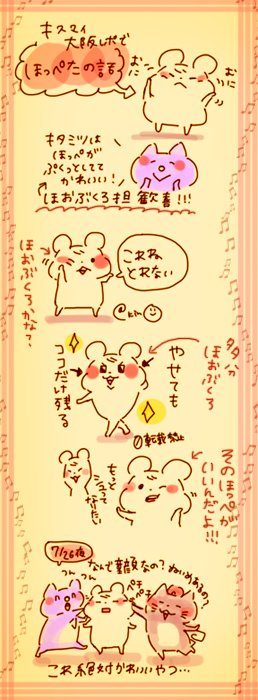 キスマイ
大阪レポで
ほっぺたの話
むに
むに
キタミツは
ほっぺが
ぷくっとしてて
かわいい!
ほおぶくろ担歓喜!!!
ほおぶくろかな?
これね
とれない
多分
ほおぶくろ
やせても
ココだけ残る
@転載禁止
もっと
シュッてなりたい
そのほっぺが
いいんだよ!!!
7/26夜
なんで難敵なの?
つん
つん
ペチ
ペチ
これ絶対かわいいやつ…